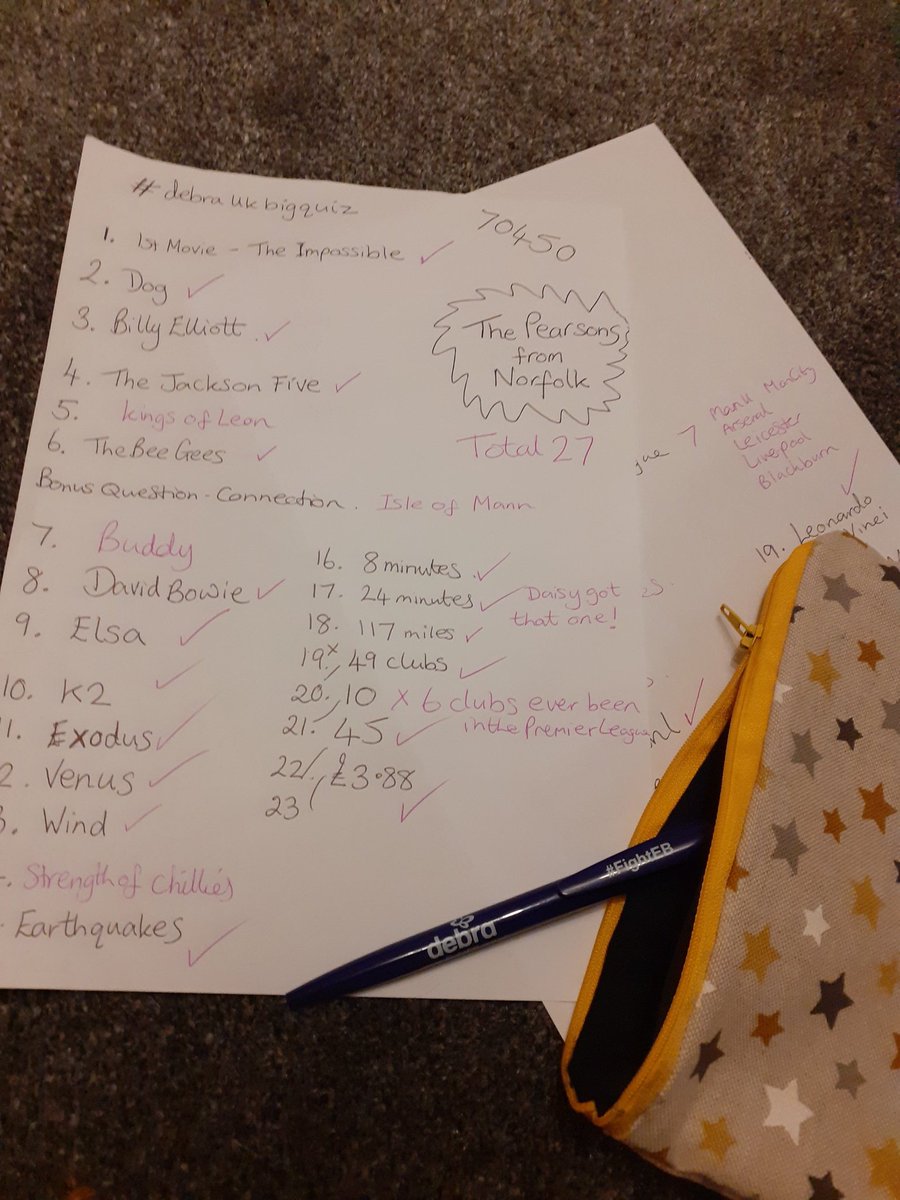 #debraukbigquiz
70450
1. 1st Movie - The Impossible ✓
2. Dog ✓
3. Billy Elliott. ✓
The Pearsons
from
Norfolk
4. The Jackson Five ✓
5. Kings of Leon
6. The Bee Gees ✓
Total 27
Bonus Question - Connection. Isle of Mann
7. Buddy
8. David Bowie ✓
9. Elsa ✓
10. K2 ✓
1. Exodus ✓
2. Venus ✓
3. Wind ✓
Strength of Chillies
Earthquakes ✓
16. 8 minutes. ✓
17. 24 minutes ✓ Daisy got
that one!
18. 117 miles ✓
19. x 49 clubs ✓
20. 10 x 6 clubs ever been
in the Premier League
21. 45 ✓
22/ £3.88
23 ✓
gue 7
ManU ManCity
Arsenal
Leicester
Liverpool
Blackburn ✓
19. Leonardo
Vinci
debra
#FightEB